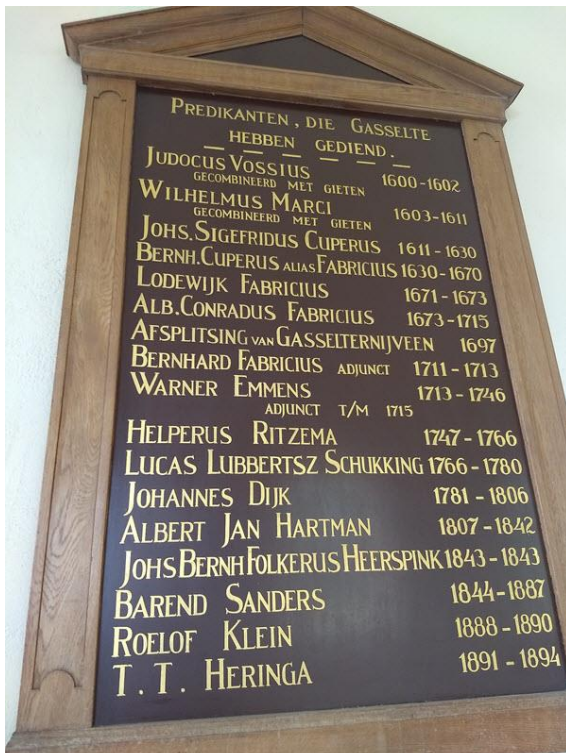 PREDIKANTEN, DIE GASSELTE
HEBBEN GEDIEND.
JUDOCUS VOSSIUS 1600-1602
GECOMBINEERD MET GIETEN
WILHELMUS MARCI 1603-1611
GECOMBINEERD MET GIETEN
JOHS. SIGEFRIDUS CUPERUS 1611-1630
BERNH. CUPERUS ALIAS FABRICIUS 1630-1670
LODEWIJK FABRICIUS 1671-1673
ALB. CONRADUS FABRICIUS 1673-1715
AFSPLITSING VAN GASSELTERNIJVEEN 1697
BERNHARD FABRICIUS ADJUNCT 1711-1713
WARNER EMMENS 1713-1746
ADJUNCT T/M 1715
HELPERUS RITZEMA 1747-1766
LUCAS LUBBERTSZ SCHUKKING 1766-1780
JOHANNES DIJK 1781-1806
ALBERT JAN HARTMAN 1807-1842
JOHS BERNH FOLKERUS HEERSPINK 1843-1843
BAREND SANDERS 1844-1887
ROELOF KLEIN 1888-1890
T. T. HERINGA 1891-1894